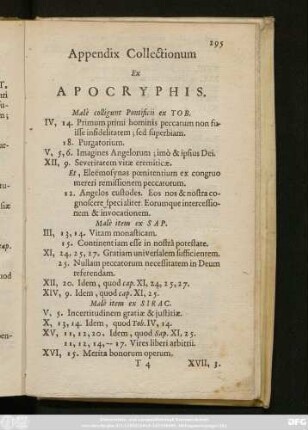 295
Appendix Collectionum
Ex
APOCRYPHIS.
Malè colligunt Pontificii ex TOB.
IV, 14. Primum primi hominis peccatum non fu-
isse infidelitatem; sed superbiam.
18. Purgatorium.
V, 5,6. Imagines Angelorum; imò & ipsius Dei.
XII, 9. Severitatem vitæ eremiticæ.
Et, Eleëmosynas pœnitentium ex congruo
mereri remissionem peccatorum.
12. Angelos custodes. Eos nos & nostra co-
gnoscere specialiter. Eorumque intercessio-
nem & invocationem.
Malè item ex SAP.
III, 13, 14. Vitam monasticam.
15. Continentiam esse in nostrâ potestate.
XI, 24, 25, 27. Gratiam universalem sufficientem.
25. Nullam peccatorum necessitatem in Deum
referendam.
XII, 20. Idem, quod cap. XI, 24, 25, 27.
XIV, 9. Idem, quod cap. XI, 25.
Malè item ex SIRAC.
V, 5. Incertitudinem gratiæ & justitiæ.
X, 13, 14. Idem, quod Tob. IV, 14.
XV, 11, 12, 20. Idem, quod Sap. XI, 25.
11, 12, 14, - 17. Vires liberi arbitrii.
XVI, 15. Merita bonorum operum.
T 4 XVII, 3.